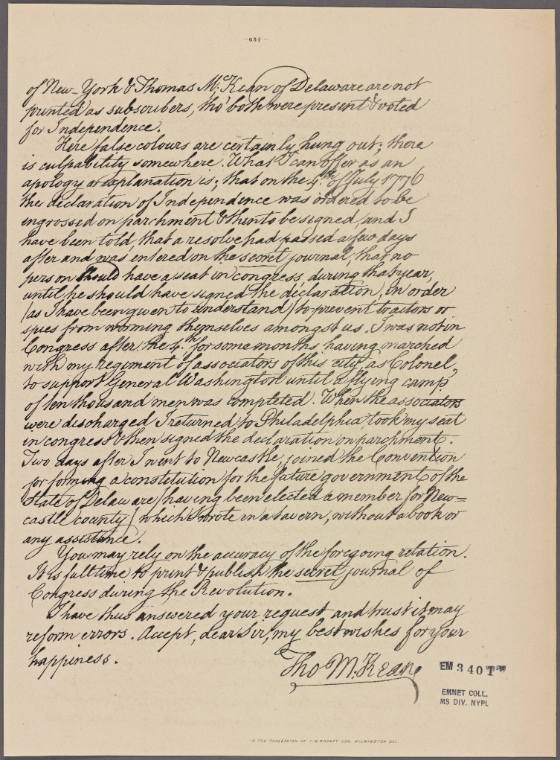 of New-York & Thomas McKean of Delaware are not
printed as subscribers, tho' both were present & voted
for Independence.
Here false colours are certainly hung out; there
is culpability somewhere. What I can offer as an
apology or explanation is; that on the 4th of July 1776
the declaration of Independence was ordered to be
engrossed on parchment & then to be signed, and I
have been told, that a resolve had passed a few days
after and was entered on the secret journal, that no
person should have a seat in congress, during that year,
until he should have signed the declaration, in order
(as I have been given to understand) to prevent traitors or
spies from worming themselves amongst us. I was not in
Congress after the 4th for some months, having marched
with my regiment of associators of this city, as Colonel,
to support General Washington until a flying camp
of ten thousand men was completed. When the associators
were discharged, I returned to Philadelphia, took my seat
in congress & then signed the declaration on parchment.
Two days after I went to Newcastle, joined the Convention
for forming a constitution for the future government of the
State of Delaware (having been elected a member for New=
castle county) which I wrote in a tavern, without a book or
any assistance.
You may rely on the accuracy of the foregoing relation.
It is full time to print & publish the secret journal of
Congress during the Revolution.
I have thus answered your request, and trust it may
reform errors. Accept, dear sir, my best wishes for your
happiness.
Tho McKean
EM 3401
EMMET COLL.
MS DIV. NYPL
IN THE POSSESSION OF